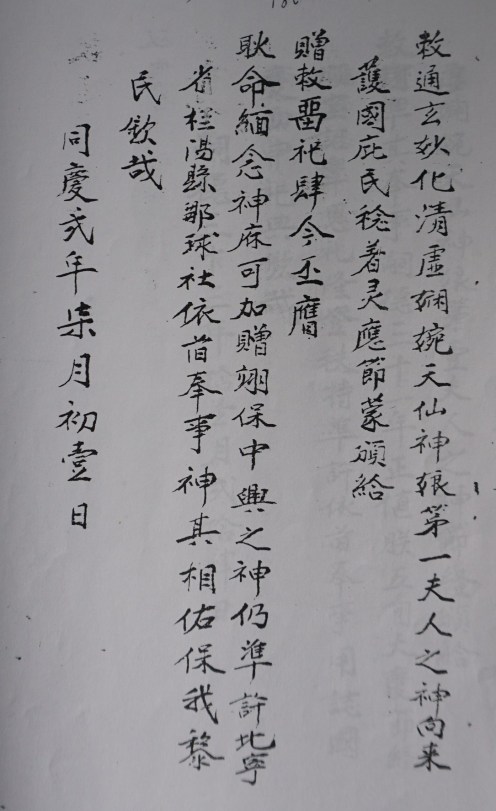 敕通玄妙化清虛嫻婉天仙神娘第一夫人之神向来
護國庇民稔著灵應節蒙頒給
贈敕畱祀肆今丕膺
耿命緬念神庥可加贈翊保中興之神仍準許北寧
省桂陽縣那球社依舊奉事神其相佑保我黎
民欽哉
同慶弍年柒月初壹日